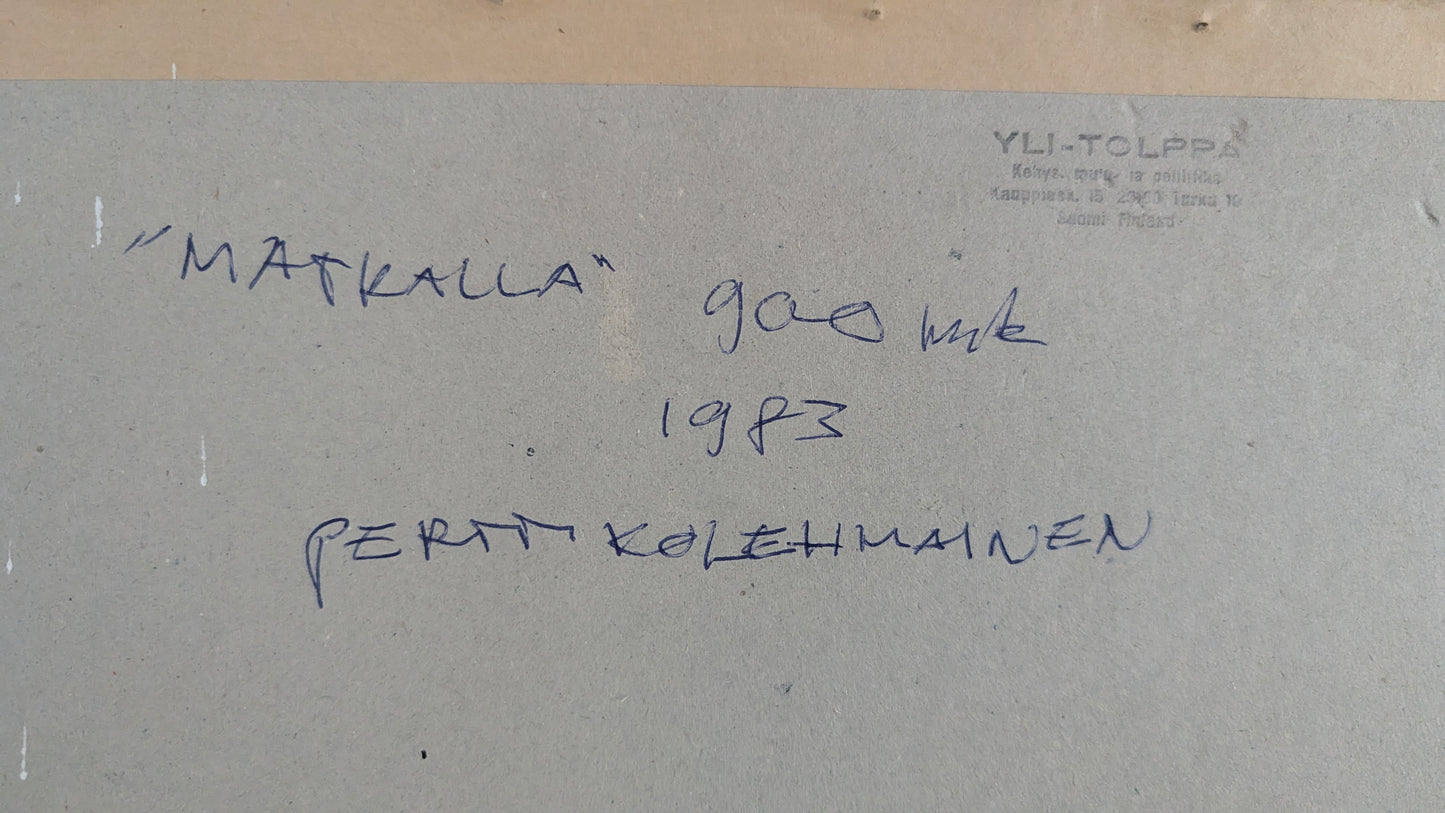 YLI-TOLPPA
Kehys, ja
Kauppiask. 15, Turku 10
Suomi Finland
"MATKALLA" 900 mk
1983
PERTTI KOLEHMAINEN